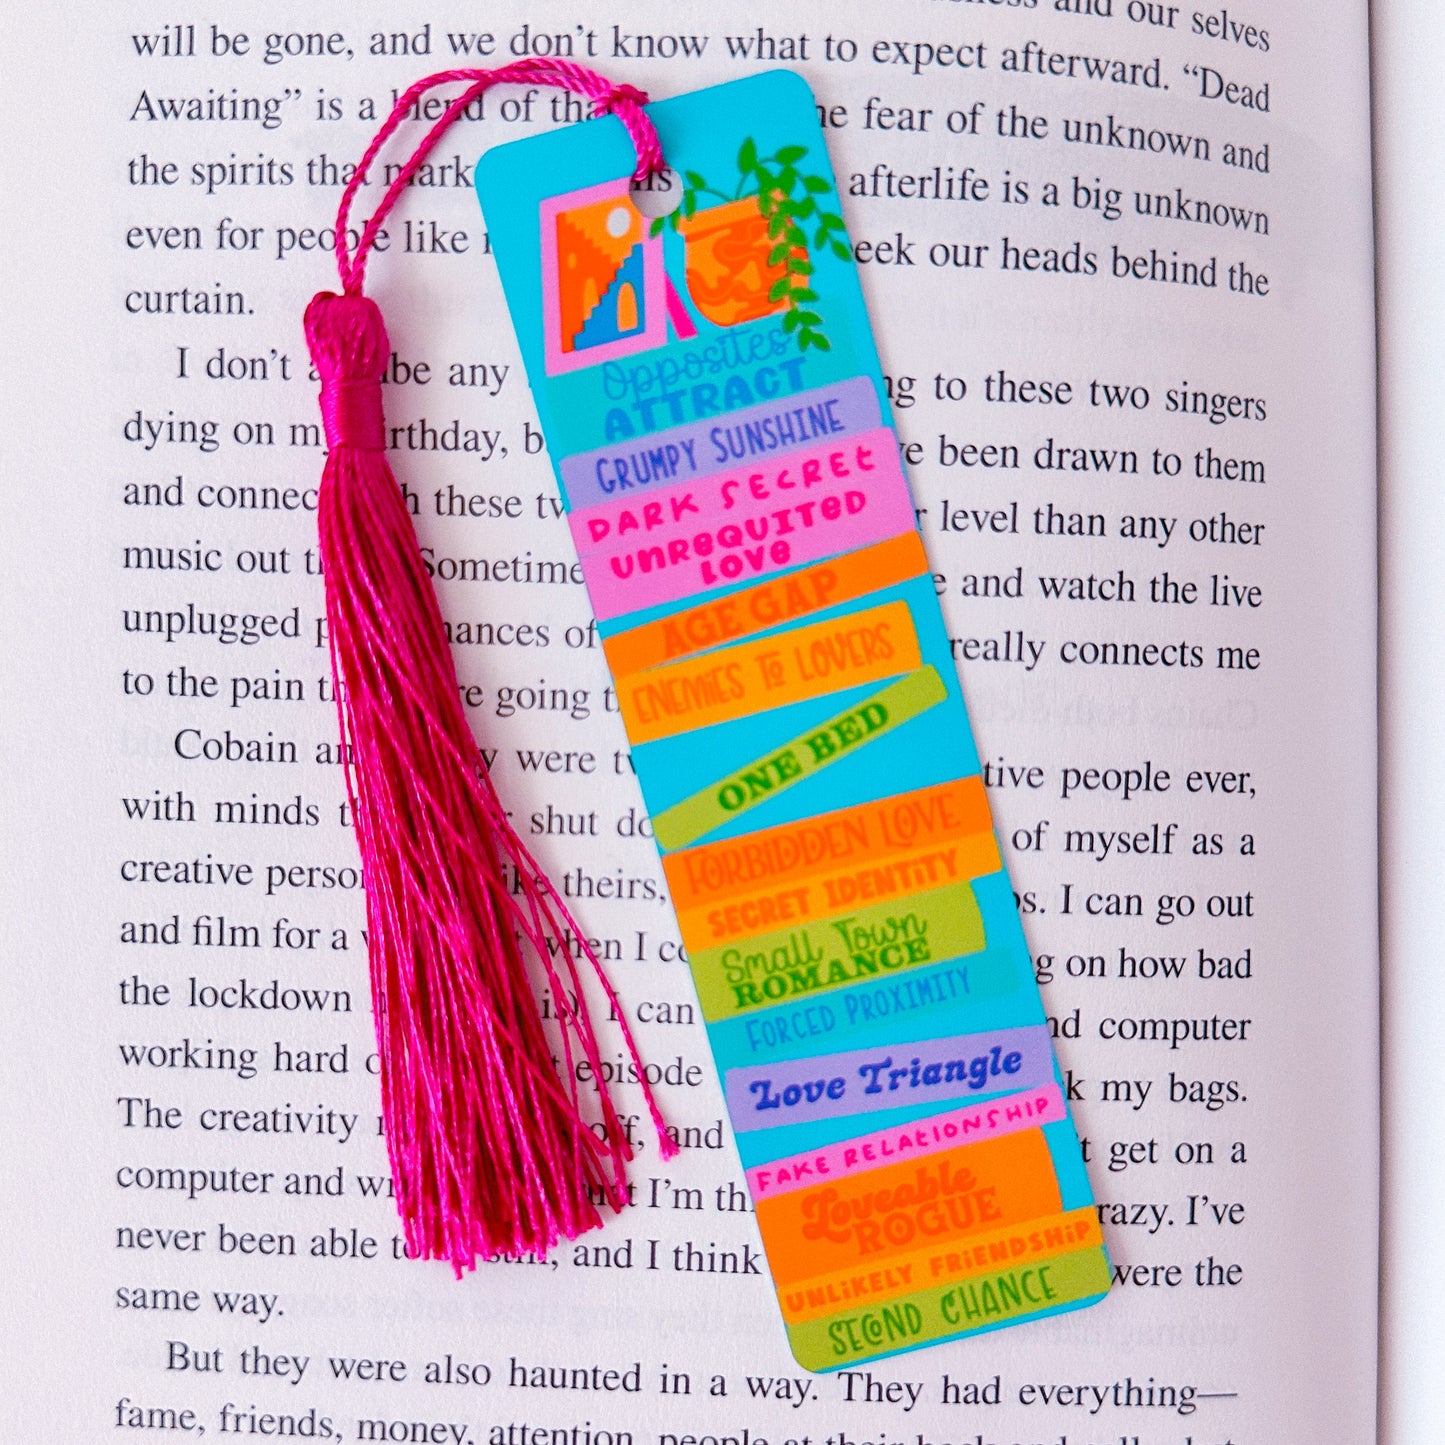 and our selves
will be gone, and we don't know what to expect afterward. "Dead
Awaiting" is a blend of the fear of the unknown and
the spirits that mark afterlife is a big unknown
even for people like eek our heads behind the
curtain.
I don't be any to these two singers
dying on my birthday, been drawn to them
and connec these level than any other
music out Sometime and watch the live
unplugged of really connects me
to the pain going
Cobain were tive people ever,
with minds shut of myself as a
creative person theirs, I can go out
and film for a when I on how bad
the lockdown I can nd computer
working hard episode my bags.
The creativity off, and get on a
computer and I'm razy. I've
never been able and I think were the
same way.
But they were also haunted in a way. They had everything—
fame, friends, money, attention, people at their
Opposites
ATTRACT
GRUMPY SUNSHINE
DARK SECRET
UNREQUITED
LOVE
AGE GAP
ENEMIES TO LOVERS
ONE BED
FORBIDDEN LOVE
SECRET IDENTITY
Small Town
ROMANCE
FORCED PROXIMITY
Love Triangle
FAKE RELATIONSHIP
Loveable
ROGUE
UNLIKELY FRIENDSHIP
SECOND CHANCE